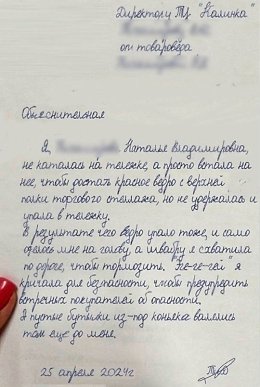 Директору ТЦ "Калинка"
от товароведа
Объяснительная
Я, Наталье Владимировна,
не каталась на тележке, а просто встала на
нее, чтобы достать красное ведро с верхней
полки торгового стеллажа, но не удержалась и
упала в тележку.
В результате чего ведро упало тоже, и само
оделось мне на голову, а швабру я схватила
по дороге, чтобы тормозить. "Ге-ге-гей" я
кричала для безопасности, чтобы предупредить
встречных покупателей об опасности.
А пустые бутылки из-под коньяка валялись
там еще до меня.
25 апреля 2024г